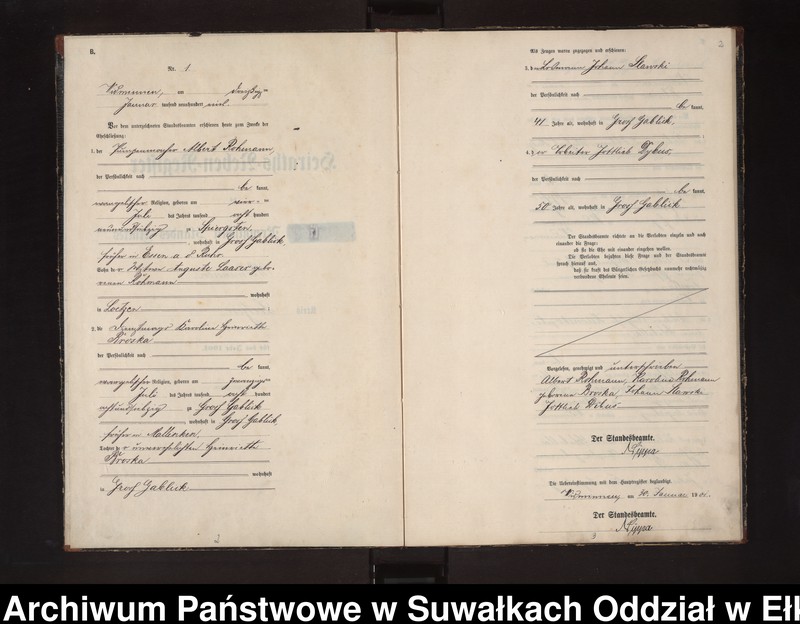 B.
Nr. 1
Widminnen, am dreißig ten
Januar tausend neunhundert und
Vor dem unterzeichneten Standesbeamten erschienen heute zum Zwecke der
Eheschließung:
1. der Albert Rohmann
der Persönlichkeit nach
be kannt,
evangelischer Religion, geboren am
Juli des Jahres tausend acht hundert
zu Spiergsten
, wohnhaft in Groß Gablick,
früher in Essen a d Ruhr
Sohn der Auguste gebo-
renen Rohmann
wohnhaft
in Loetzen
2. die Karoline Henriette
Broska
der Persönlichkeit nach
be kannt,
evangelischer Religion, geboren am
Juli des Jahres tausend acht hundert
achtundsiebzig zu Groß Gablick
, wohnhaft in Groß Gablick,
früher in
Tochter der unverehelichten Henriette
Broska
wohnhaft
in Groß Gablick
2
2
Als Zeugen waren zugezogen und erschienen:
3. der Losmann Johann Slawski
der Persönlichkeit nach
be kannt,
41 Jahre alt, wohnhaft in Groß Gablick,
4. der Arbeiter Gottlieb Dybus
der Persönlichkeit nach
be kannt,
50 Jahre alt, wohnhaft in Groß Gablick
Der Standesbeamte richtete an die Verlobten einzeln und nach
einander die Frage:
ob sie die Ehe mit einander eingehen wollen.
Die Verlobten bejahten diese Frage und der Standesbeamte
sprach hierauf aus,
daß sie kraft des Bürgerlichen Gesetzbuchs nunmehr rechtmäßig
verbundene Eheleute seien.
Vorgelesen, genehmigt und unterschrieben
Albert Rohmann, Karoline Rohmann
geborene Broska, Johann Slawski
Gottlieb Dibus
Der Standesbeamte.
Die Uebereinstimmung mit dem Hauptregister beglaubigt.
Widminnen, am 30. Januar 190
Der Standesbeamte.
3
Archiwum Państwowe w Suwałkach Oddział w Ełk